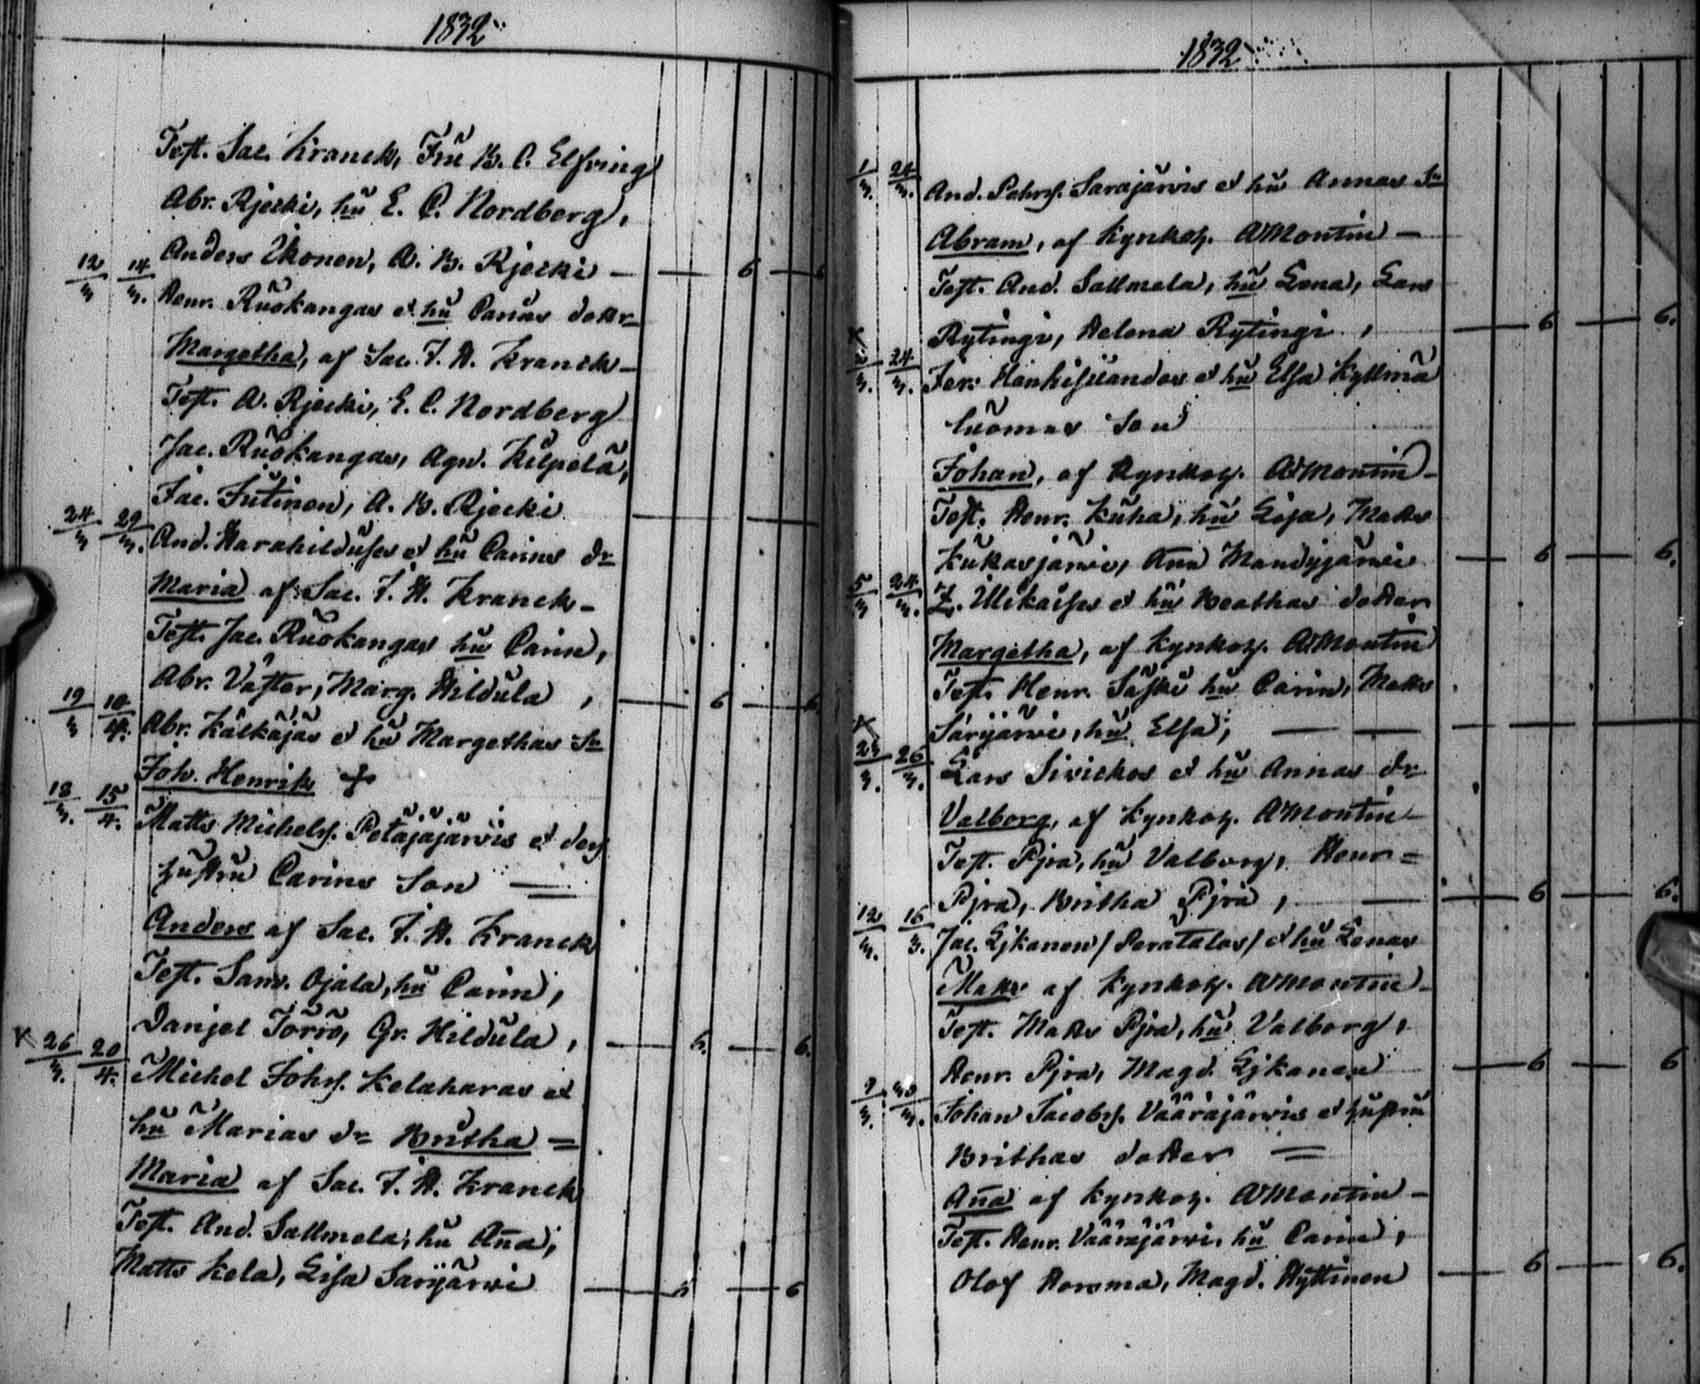 1832
Test. Sac. Kranck, Fru B. C. Elfving
Abr. Rjecki, hu E. C. Nordberg,
Anders Ikonen, A. B. Rjecki — — 6 — 6
12/3 14/3. Henr. Ruokangas et hu Carins dottr
Margetha, af Sac. J. H. Kranck —
Test. A. Rjecki, E. C. Nordberg
Jac. Ruokangas, Agn. Kilpelä,
Jac. Jutinen, A. B. Rjecki
24/3 29/3. And. Harahilduses et hu Carins dr
Maria af Sac. J. H. Kranck —
Test. Jac. Ruokangas hu Carin,
Abr. Väster, Marg. Hildula, — 6 — 6
19/3 10/4. Abr. Kälkäjäs et hu Margethas Sn
Joh. Henrik +
18/3. 15/4. Matts Michelss. Petäjäjärvis et dess
hustru Carins Son —
Anders af Sac. J. H. Kranck
Test. Sam. Ojala, hu Carin,
Danjel Törrö, Gr. Hildula, — 6. — 6.
x 26/3. 20/4. Michel Johss. Kelaharas et
hu Marias dr Britha =
Maria af Sac. J. H. Kranck
Test. And. Sallmela, hu Aña,
Matts Kela, Lisa Sarijärvi — 6 — 6
1832
1/3. 24/3. And. Pehrss. Sarajärvis et hu Annas Sn
Abram, af Kynkoz. AMontin —
Test. And. Sallmela, hu Lena, Lars
Rytingi, Helena Rytingi, — 6 — 6.
x 24/3. Jer. Hankisuandos et hu Elsa Kyllmä
luomas Son
Johan, af Kynkoz. AMontin —
Test. Henr. Kuha, hu Lisa, Matts
Kukasjärvi, Ann Mandyjärvi — 6 — 6.
5/3 24/3. Z. Ulckaises et hu Beathas dotter
Margetha, af Kynkoz. AMontin
Test. Henr. Saski hu Carin, Matts
x Särijärvi, hu Elsa, — —
26/3. Lars Sivickos et hu Annas dr
Valborg, af Kynkoz. AMontin —
Test. Pjra, hu Valborg, Henr =
Pjra, Britha Pjra, — 6 — 6.
12/3. 16/3. Jac. Ejkanen / Peratalos / et hu Lenas
Matts af Kynkoz. AMontin —
Test. Matts Pjra, hu Valborg,
Henr. Pjra, Magd. Ejkanen — 6 — 6
Johan Jacobss. Vääräjärvis et hustru
Brithas dotter =
Aña af Kynkoz. AMontin —
Test. Henr. Vääräjärvi, hu Carin,
Olof Horsma, Magd. Hyttinen — 6 — 6.